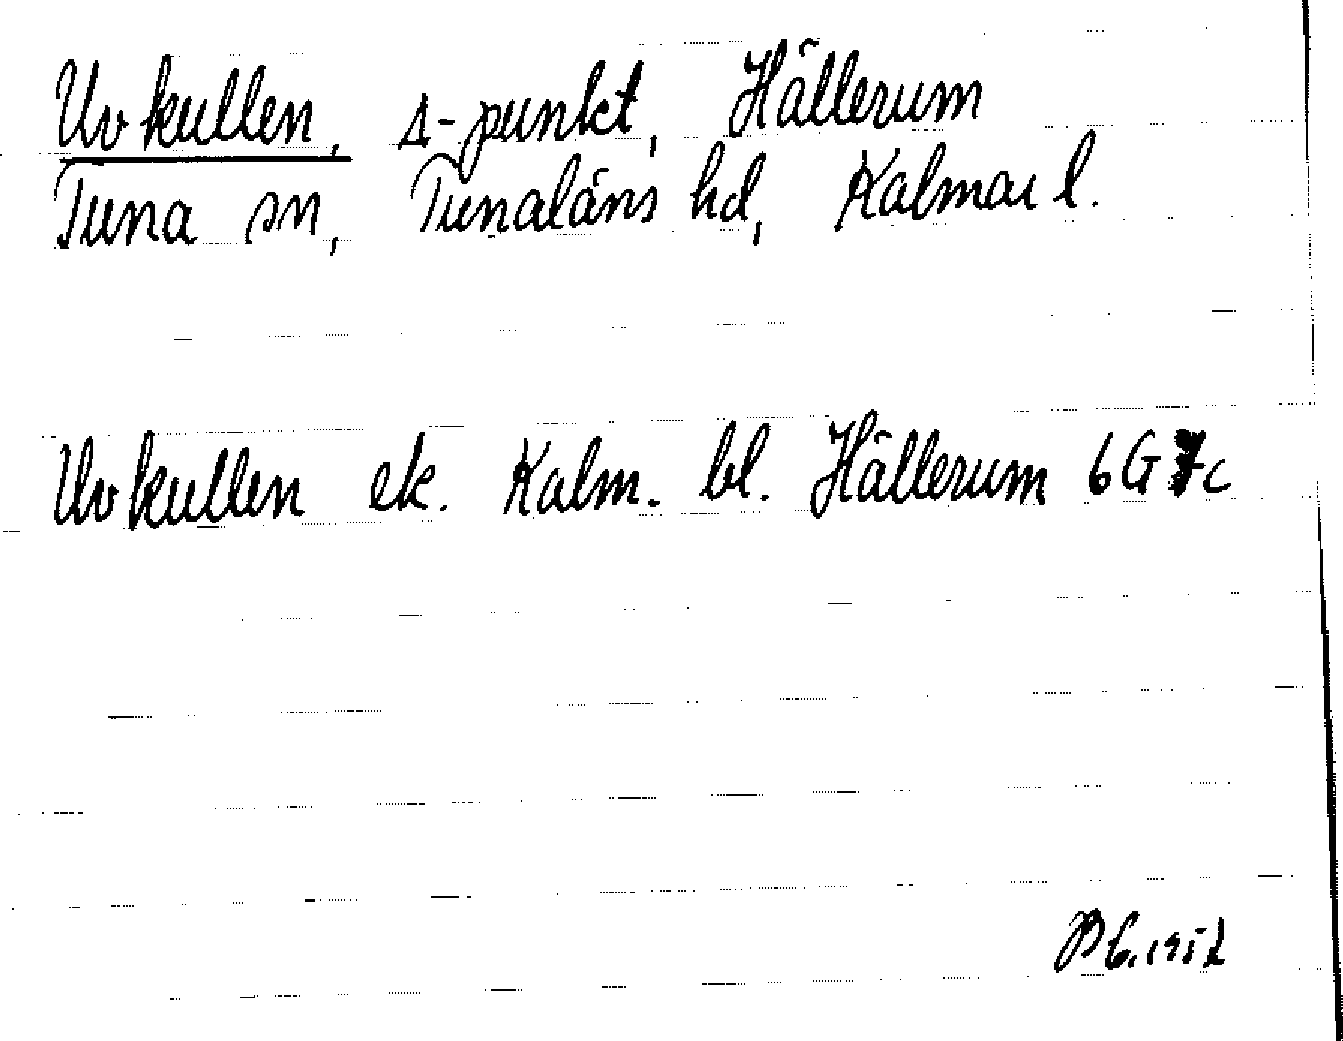 Uvkullen, Δ-punkt, Hällerum
Tuna sn, Tunaläns hd, Kalmar l.
Uvkullen ek. Kalm. bl. Hällerum 6G 7c
1952